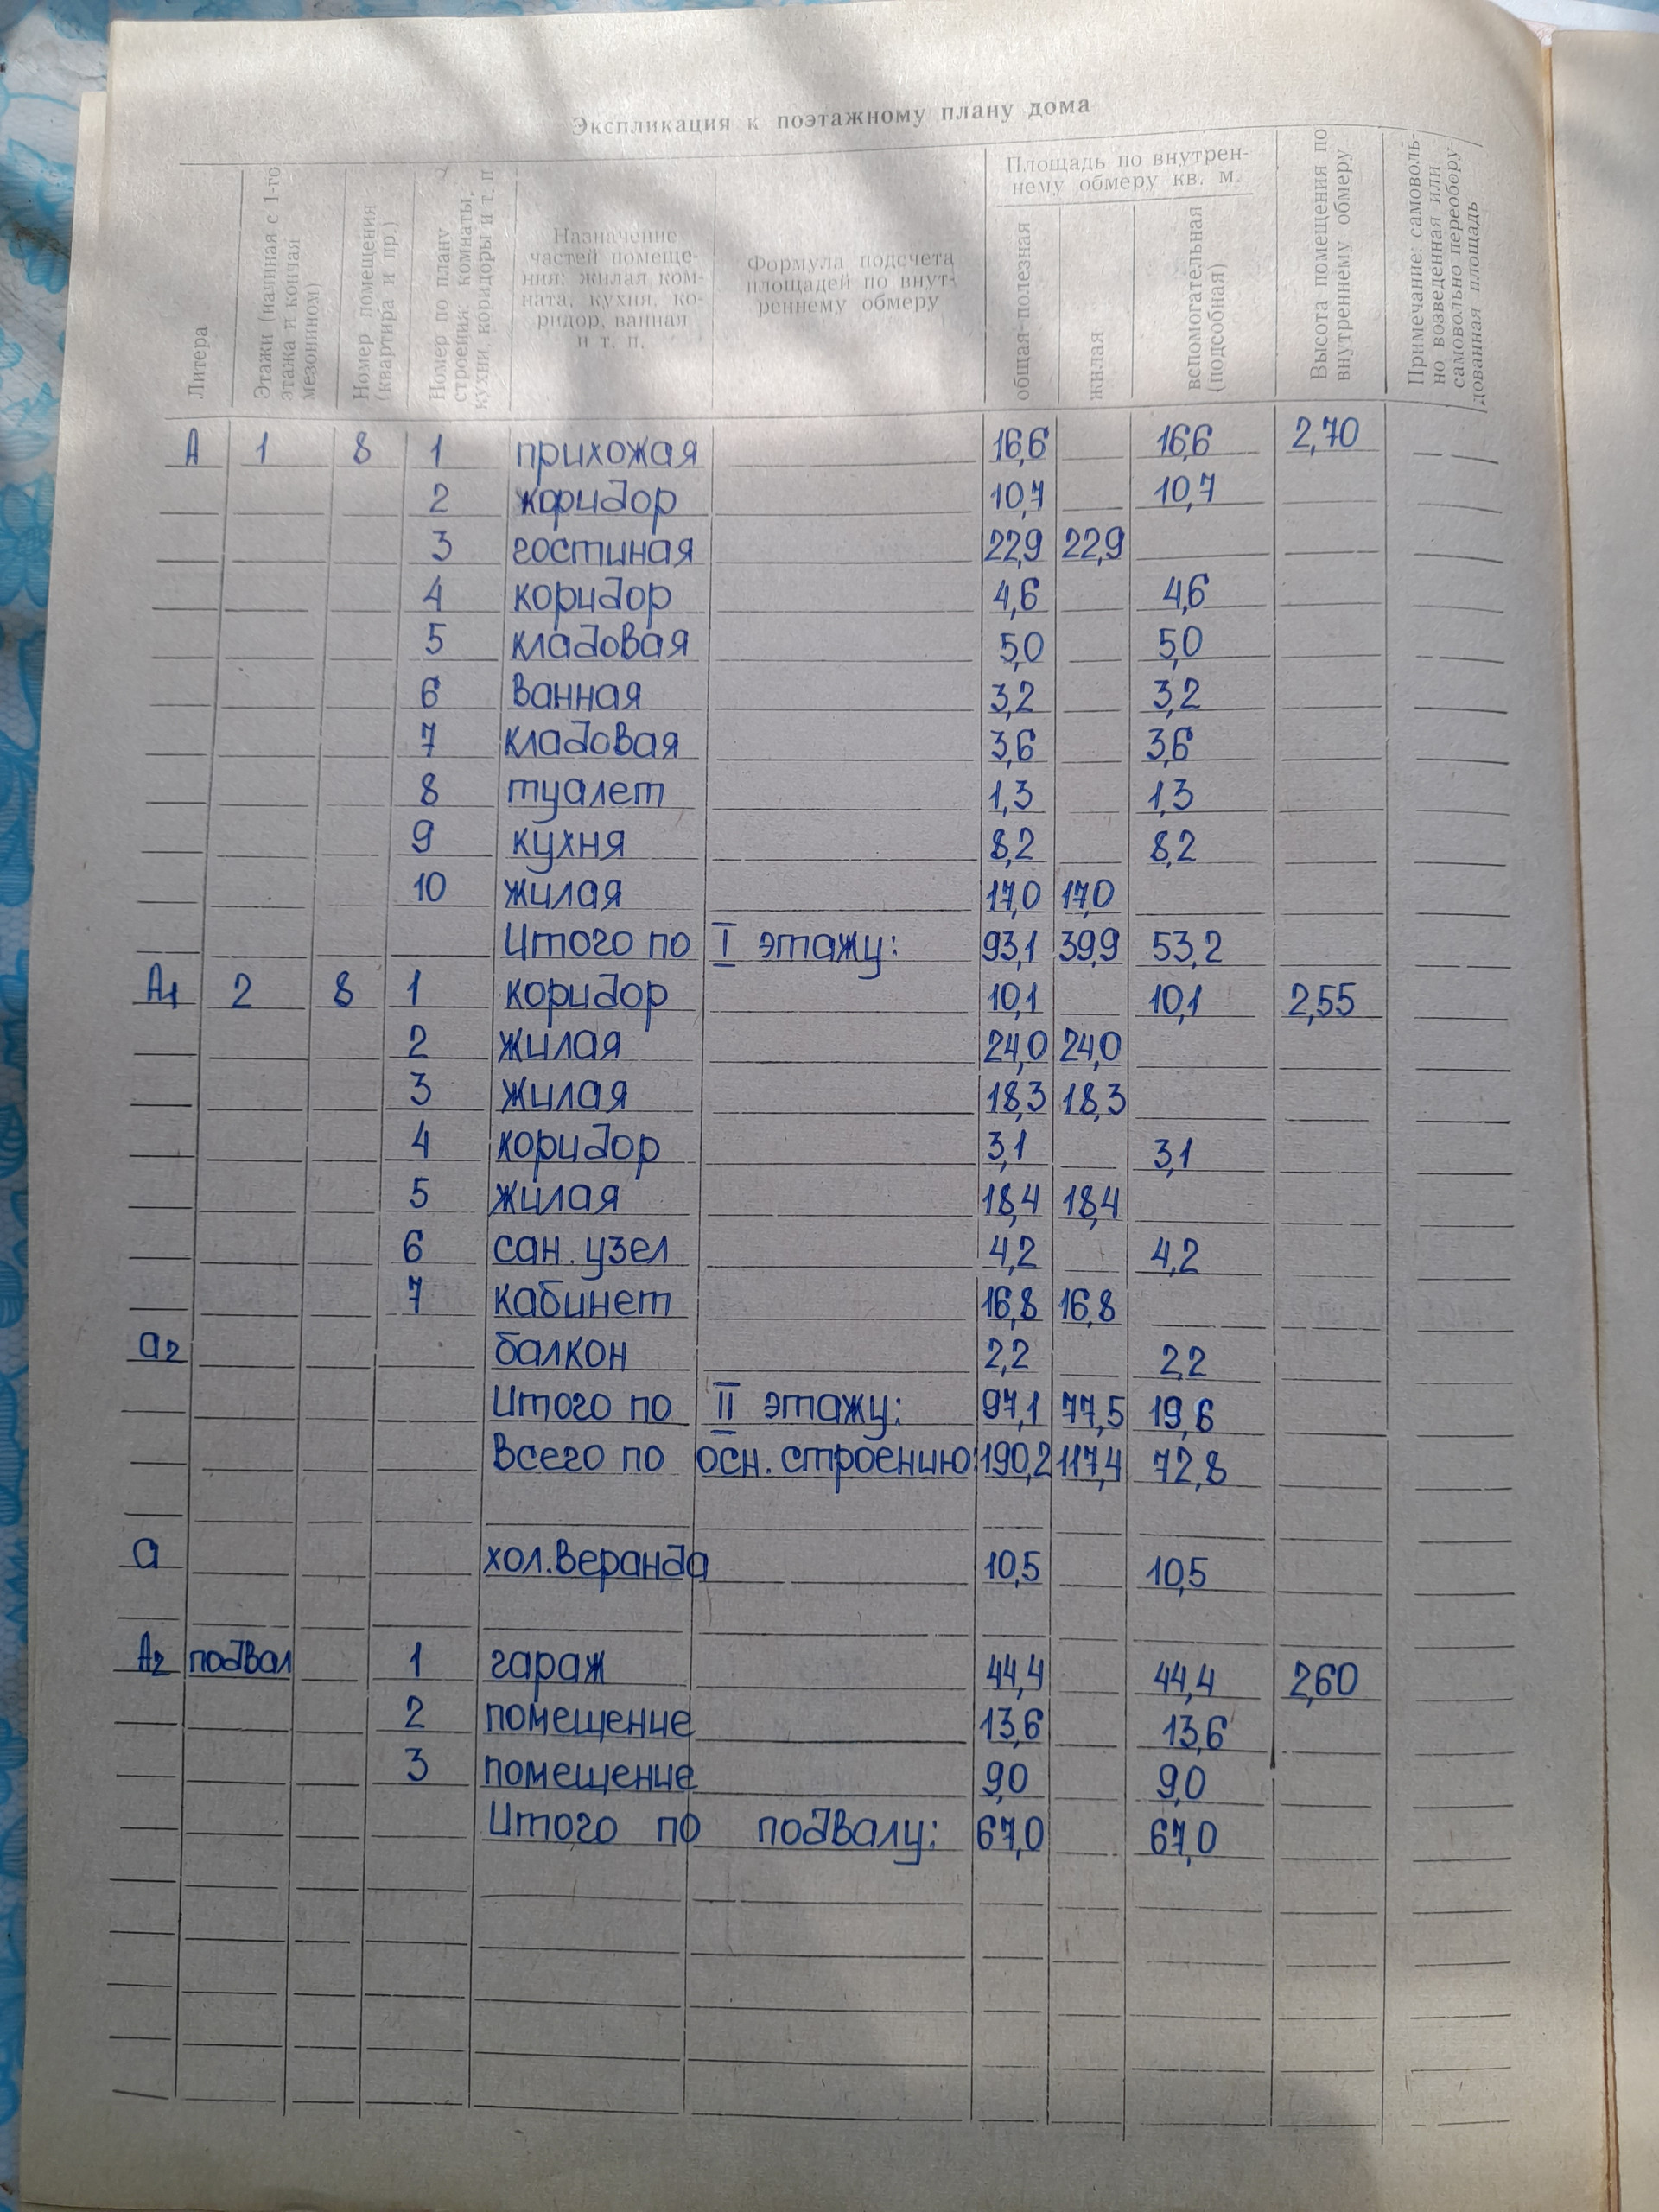 Экспликация к поэтажному плану дома
Литера
Этажи (начиная с 1-го
этажа и кончая
мезонином)
Номер помещения
(квартира и пр.)
Номер по плану
строения: комнаты,
кухни, коридоры и т. п
Назначение
частей помеще-
ния: жилая ком-
ната, кухня, ко-
ридор, ванная
и т. п.
Формула подсчета
площадей по внут-
реннему обмеру
Площадь по внутрен-
нему обмеру кв. м.
общая полезная
жилая
вспомогательная
(подсобная)
Высота помещения по
внутреннему обмеру
Примечание: самоволь-
но возведенная или
самовольно переобору-
дованная площадь
А 1 8 1 прихожая 16,6 16,6 2,70
2 коридор 10,7 10,7
3 гостиная 22,9 22,9
4 коридор 4,6 4,6
5 кладовая 5,0 5,0
6 ванная 3,2 3,2
7 кладовая 3,6 3,6
8 туалет 1,3 1,3
9 кухня 8,2 8,2
10 жилая 17,0 17,0
Итого по I этажу: 93,1 39,9 53,2
А1 2 8 1 коридор 10,1 10,1 2,55
2 жилая 24,0 24,0
3 жилая 18,3 18,3
4 коридор 3,1 3,1
5 жилая 18,4 18,4
6 сан. узел 4,2 4,2
7 кабинет 16,8 16,8
а2 балкон 2,2 2,2
Итого по II этажу: 97,1 77,5 19,6
Всего по осн. строению 190,2 117,4 72,8
а хол. веранда 10,5 10,5
А2 подвал 1 гараж 44,4 44,4 2,60
2 помещение 13,6 13,6
3 помещение 9,0 9,0
Итого по подвалу: 67,0 67,0